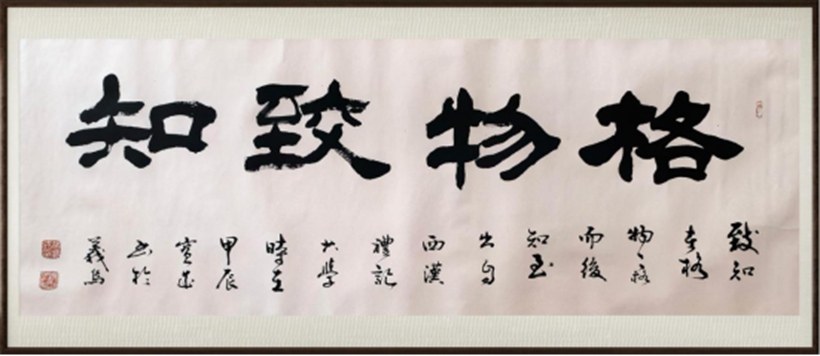 格物致知
致知
在格
物々格
而後
知至
出自
西漢
禮記
大學
時在
甲辰
書於
義烏